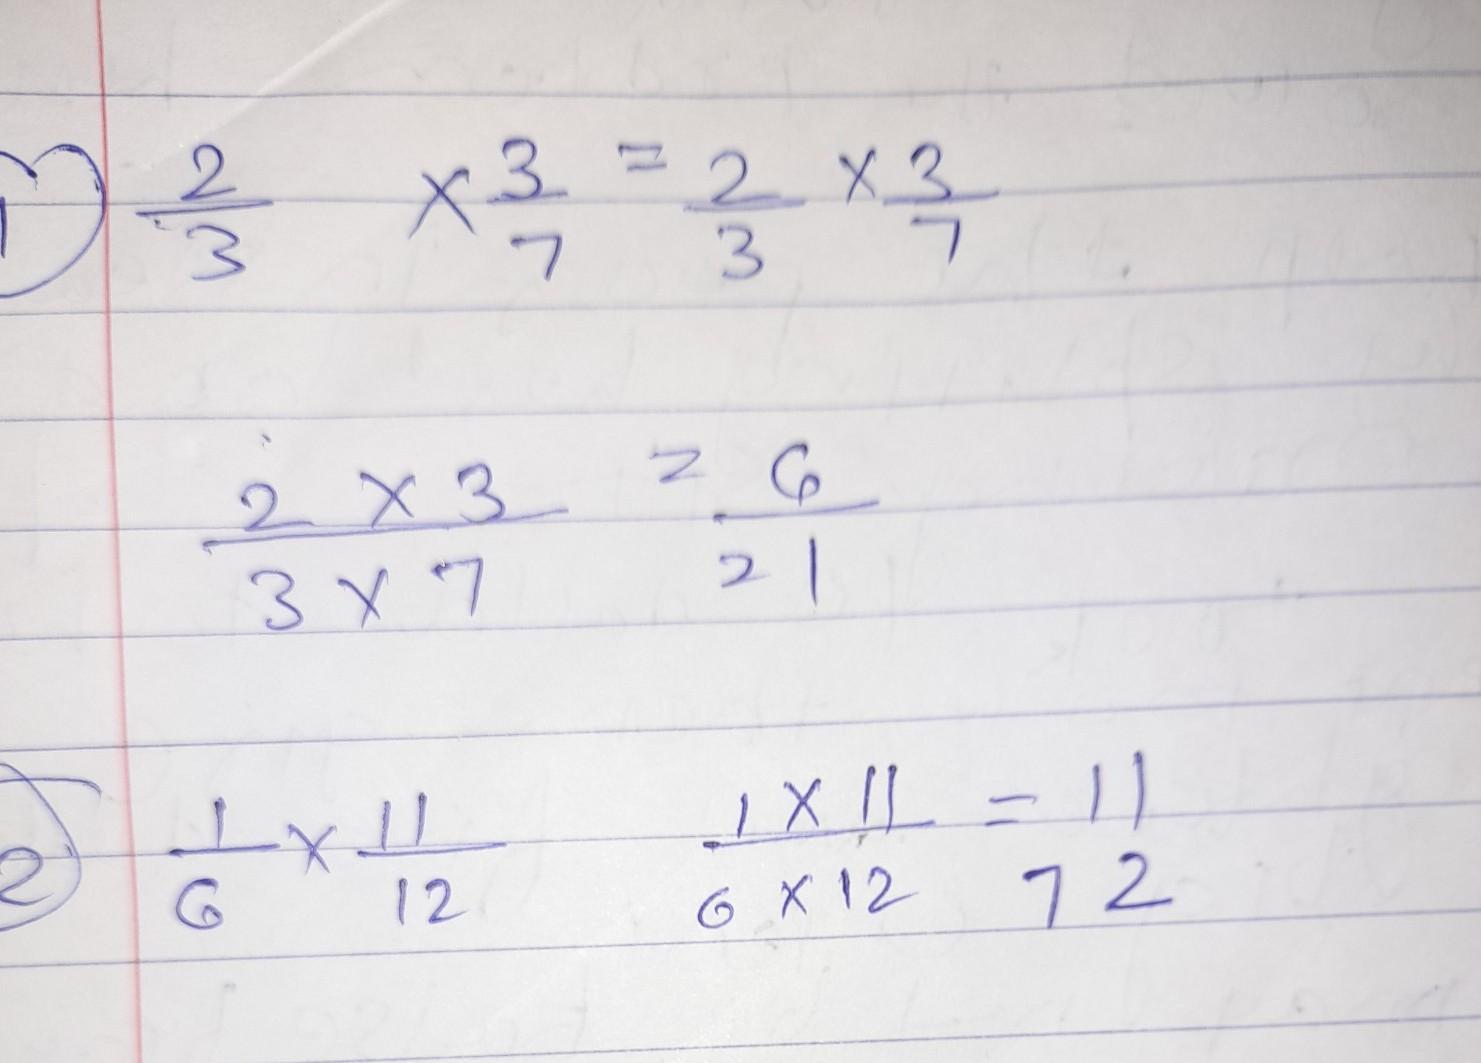 1 2/3 × 3/7 = 2/3 × 3/7
2 × 3 / 3 × 7 = 6/21
2 1/6 × 11/12 1 × 11 / 6 × 12 = 11 72